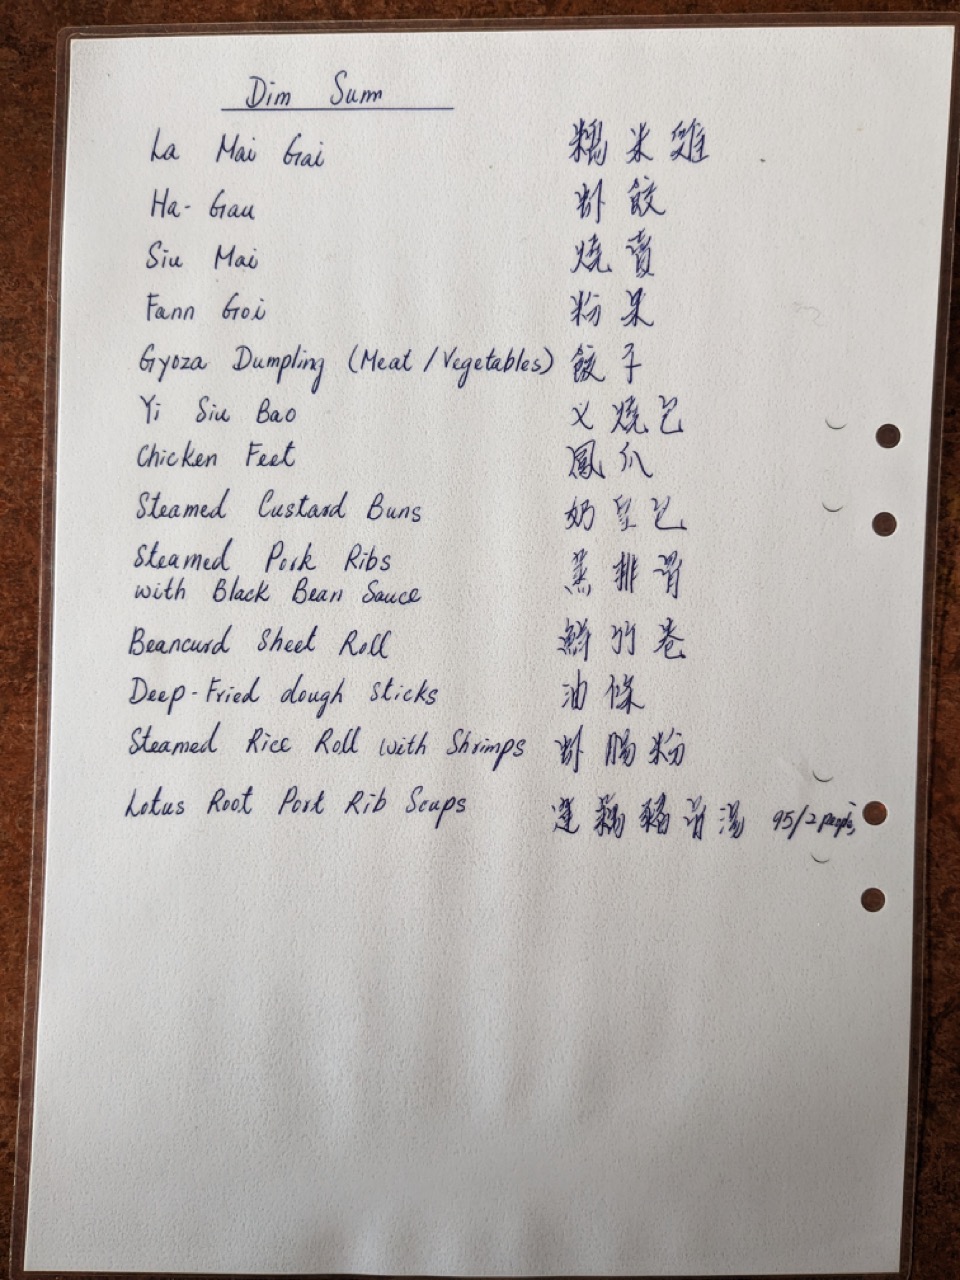 Dim Sum
La Mai Gai 糯米雞
Ha-Gau 虾餃
Siu Mai 燒賣
Fann Goi 粉果
Gyoza Dumpling (Meat / Vegetables) 餃子
Yi Siu Bao 义燒包
Chicken Feet 鳳爪
Steamed Custard Buns 奶皇包
Steamed Pork Ribs 蒸排骨
with Black Bean Sauce
Beancurd Sheet Roll 鮮竹卷
Deep-Fried dough Sticks 油條
Steamed Rice Roll with Shrimps 虾腸粉
Lotus Root Port Rib Soups 蓮藕豬骨湯 95/2 people